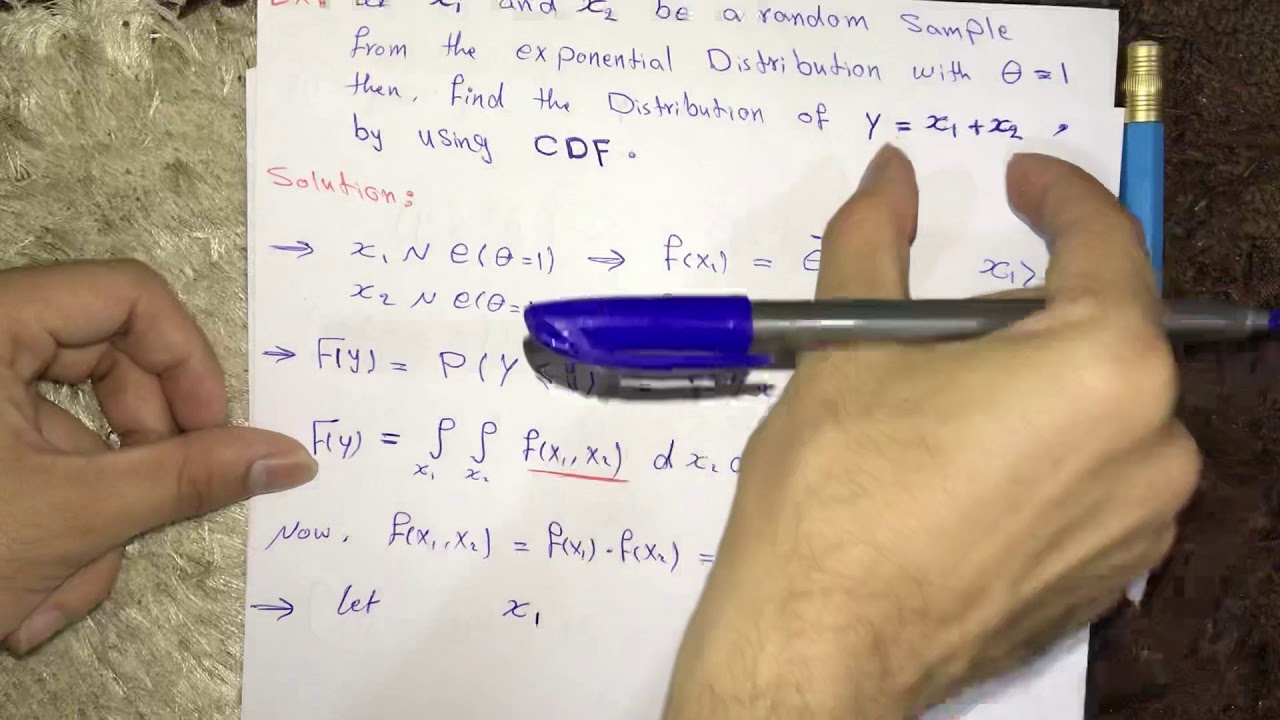 Ex: Let x₁ and x₂ be a random Sample
from the exponential Distribution with θ=1
then, find the Distribution of Y = x₁+x₂ ,
by using CDF.
Solution:
→ x₁ ~ e(θ=1) → f(x₁) = e⁻ x₁>
x₂ ~ e(θ=
→ F(y) = P(Y ≤ y) =
F(y) = ∫x₁ ∫x₂ f(x₁,x₂) dx₂
Now, f(x₁,x₂) = f(x₁)·f(x₂) =
→ let x₁